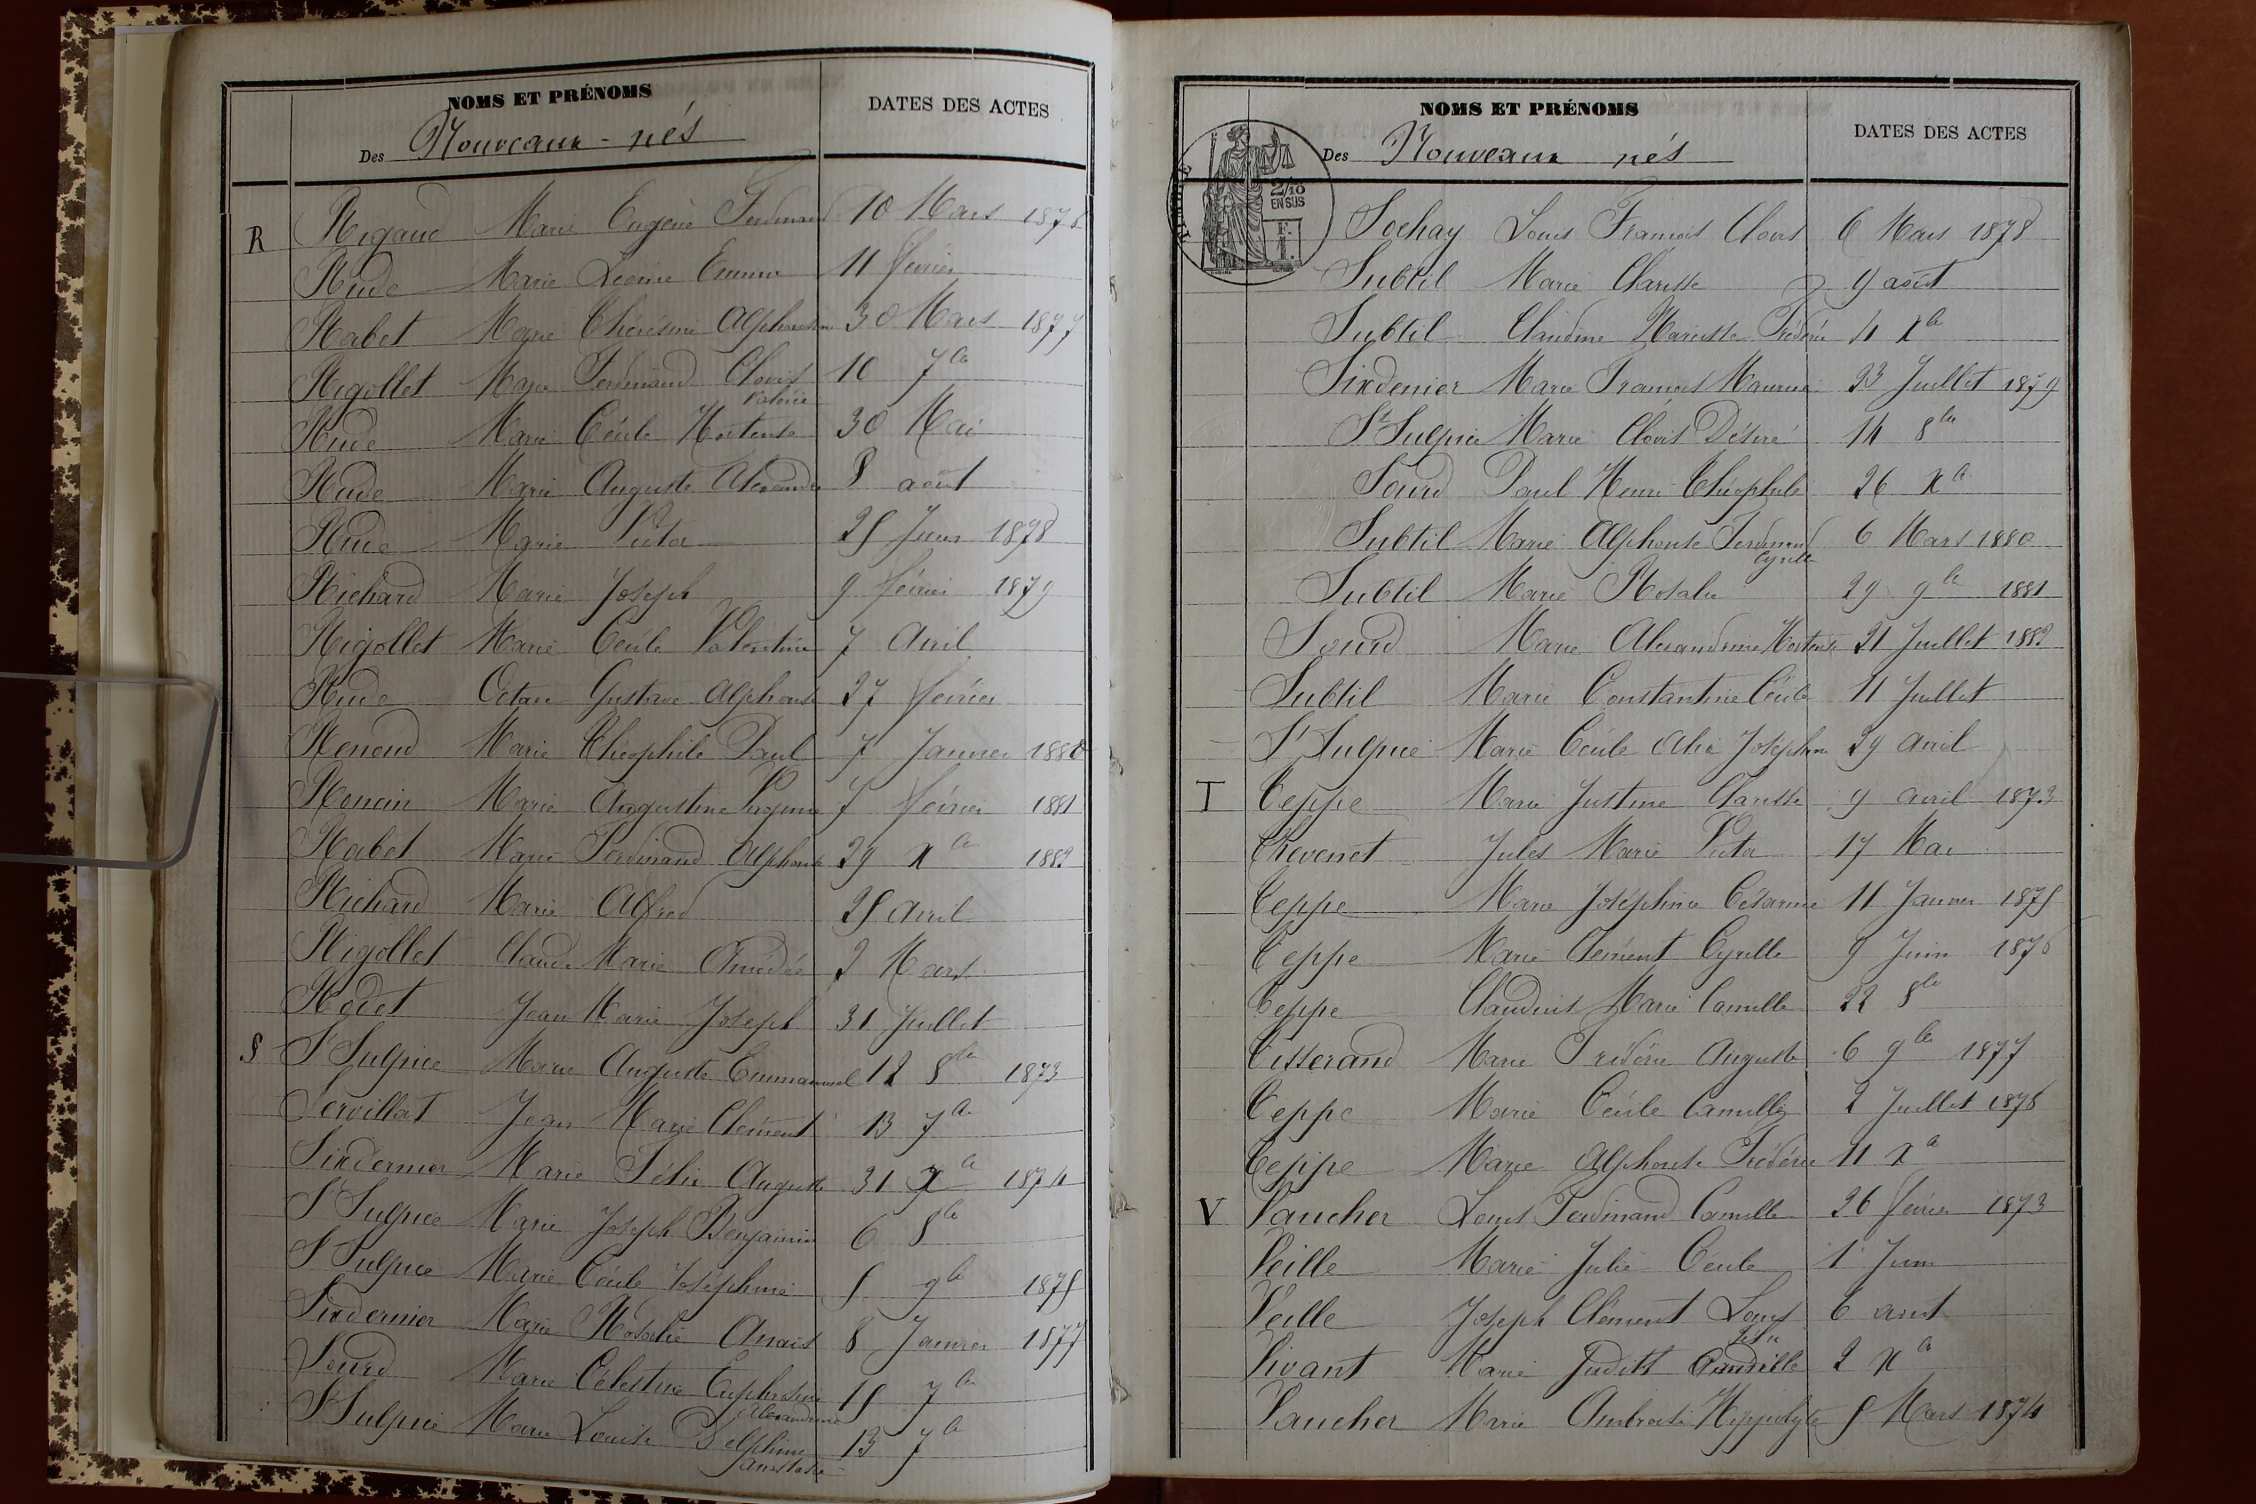 NOMS ET PRÉNOMS
DATES DES ACTES
Des Nouveaux-nés
R Rigaud Marie Eugène Ferdinand 10 Mars 1876
Rude Marie Léonie Emma 11 février
Rabet Marie Thérésine Alphonsine 30 Mars 1877
Rigollet Marie Ferdinand Clovis 10 7bre
Rude Marie Cécile Hortense 30 Mai
Rude Marie Auguste Alexandre 8 août
Rude Marie Victor 25 Juin 1878
Richard Marie Joseph 9 février 1879
Rigollet Marie Cécile Valentine 7 avril
Rude Octave Gustave Alphonse 27 février
Renoud Marie Théophile Paul 7 Janvier 1880
Roncin Marie Augustine 7 février 1881
Rabet Marie Ferdinand Alphonse 29 Xbre 1882
Richard Marie Alfred 25 avril
Rigollet Claude Marie Amédée 2 Mars
Rodet Jean Marie Joseph 31 Juillet
S St Sulpice Marie Auguste Emmanuel 12 8bre 1873
Servillat Jean Marie Clément 13 7bre
Sixdenier Marie Félix Auguste 31 Xbre 1874
St Sulpice Marie Joseph Benjamin 6 8bre
St Sulpice Marie Cécile Joséphine 5 9bre 1875
Sixdenier Marie Rosalie Anaïs 8 Janvier 1877
Sourd Marie Célestine Euphrasine 15 7bre
Alexandrine
St Sulpice Marie Louise Delphine 13 7bre
Anastasie
NOMS ET PRÉNOMS
DATES DES ACTES
Des Nouveaux nés
2/10
EN SUS
F.
1.
Sochay Louis François Clovis 6 Mars 1878
Subtil Marie Clarisse 9 août
Subtil Claudine Mariette 4 Xbre
Sixdenier Marie François Maurice 23 Juillet 1879
St Sulpice Marie Clovis Désiré 14 8bre
Sourd Paul Henri Théophile 26 Xbre
Subtil Marie Alphonse Ferdinand 6 Mars 1880
Cyrille
Subtil Marie Rosalie 29 9bre 1881
Sourd Marie Alexandrine Hortense 21 Juillet 1882
Subtil Marie Constantine Cécile 11 Juillet
St Sulpice Marie Cécile Alix Joséphine 29 avril
T Teppe Marie Justine Clarisse 9 avril 1873
Thevenet Jules Marie Victor 17 Mai
Teppe Marie Joséphine Césarine 11 Janvier 1875
Teppe Marie Clément Cyrille 9 Juin 1876
Teppe Claudius Marie Camille 22 8bre
Tisserand Marie Frédéric Auguste 6 9bre 1877
Teppe Marie Cécile Camille 2 Juillet 1878
Teppe Marie Alphonse Frédéric 11 Xbre
V Vaucher Louis Ferdinand Camille 26 février 1873
Veille Marie Julie Cécile 1 Juin
Veille Joseph Clément Louis 6 août
Vivant Marie Judith 2 Xbre
Vaucher Marie Ambroise Hippolyte 5 Mars 1874